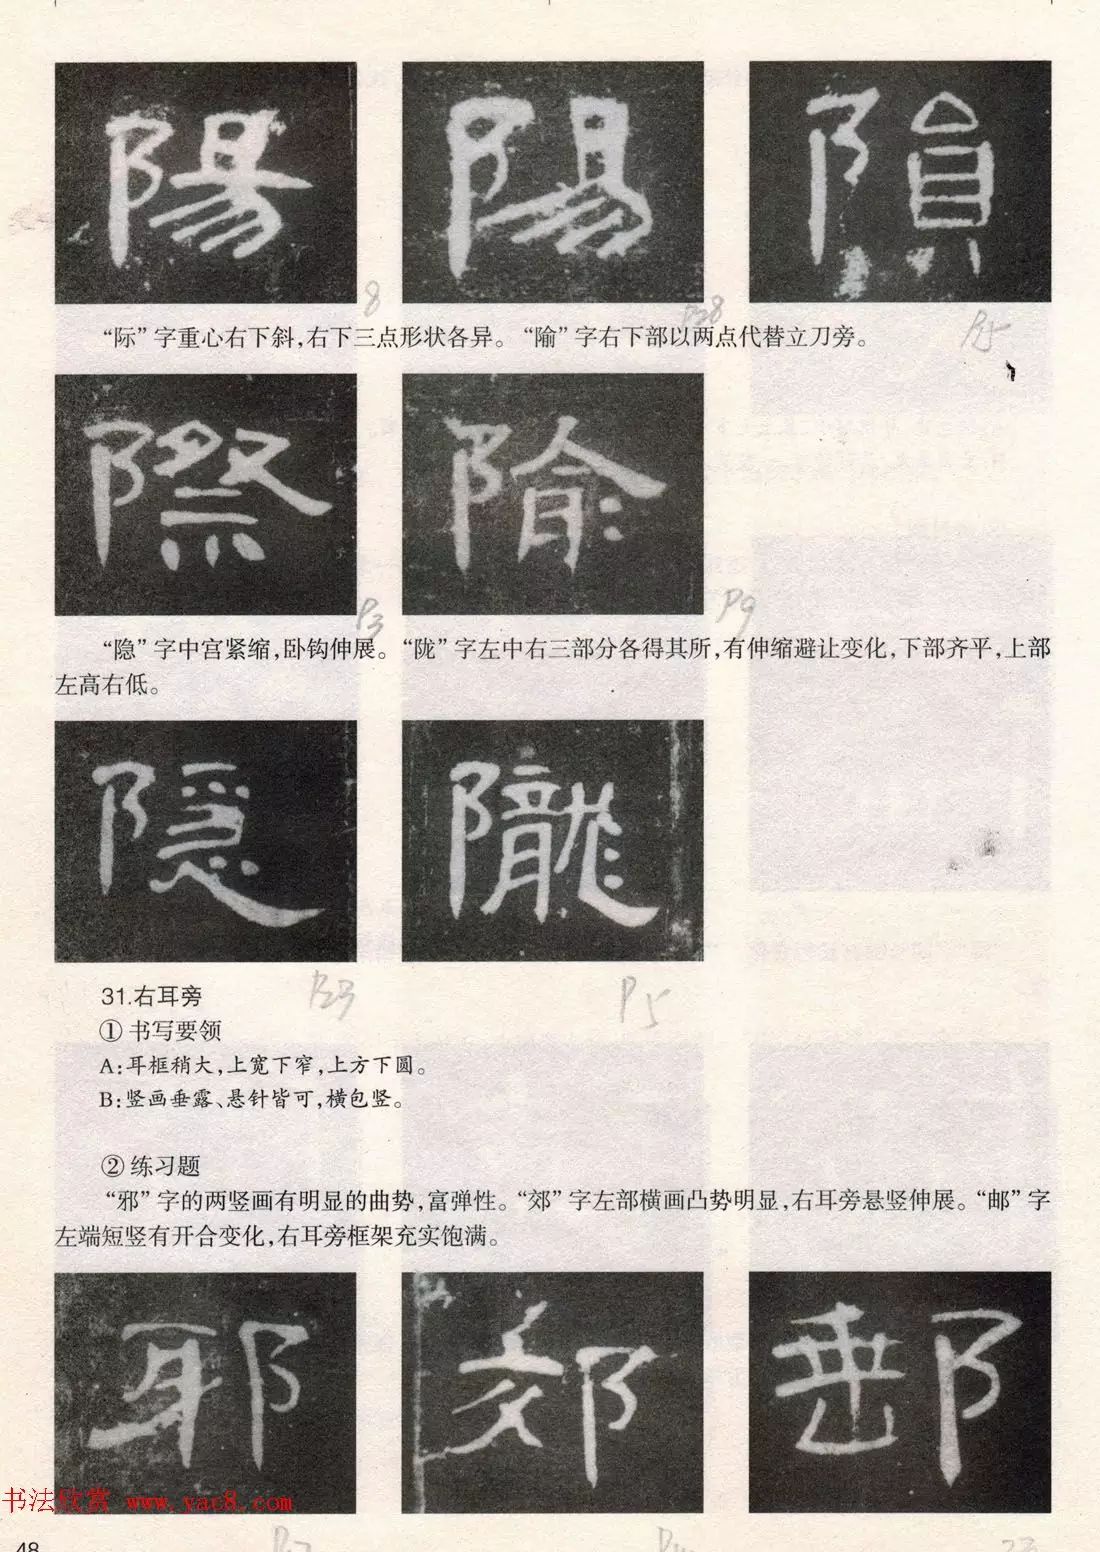 陽 陽 隕
8 P28 P5
“际”字重心右下斜,右下三点形状各异。“隃”字右下部以两点代替立刀旁。
際 隃
P3 P9
“隐”字中宫紧缩,卧钩伸展。“陇”字左中右三部分各得其所,有伸缩避让变化,下部齐平,上部
左高右低。
隐 隴
P23 P5
31.右耳旁
① 书写要领
A:耳框稍大,上宽下窄,上方下圆。
B:竖画垂露、悬针皆可,横包竖。
② 练习题
“邪”字的两竖画有明显的曲势,富弹性。“郊”字左部横画凸势明显,右耳旁悬竖伸展。“邮”字
左端短竖有开合变化,右耳旁框架充实饱满。
邪 郊 郵
书法欣赏 www.yac8.com
48